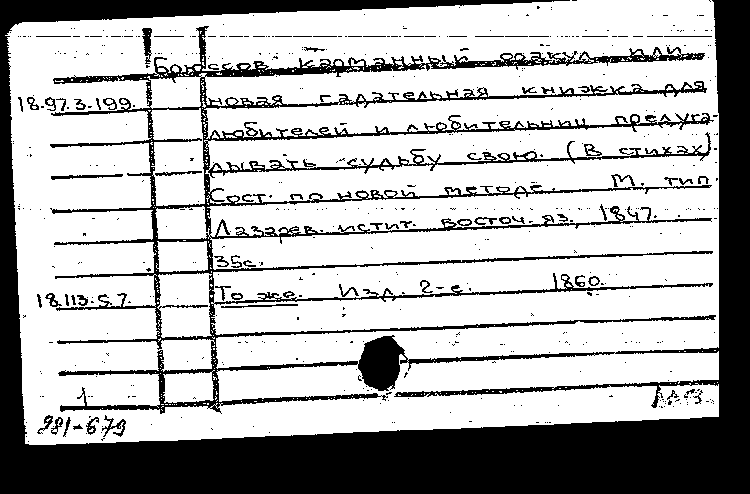 Брюсов карманный оракул или
18.97.3.199. новая гадательная книжка для
любителей и любительниц предуга-
дывать судьбу свою. (В стихах).
Сост. по новой методе. М., тип.
Лазарев. истит. восточ. яз., 1847.
35с.
18.113.5.7. То же. Изд. 2-е. 1860.
1
981-679